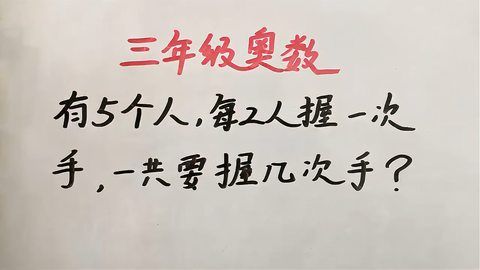 三年级奥数
有5个人,每2人握一次
手,一共要握几次手?